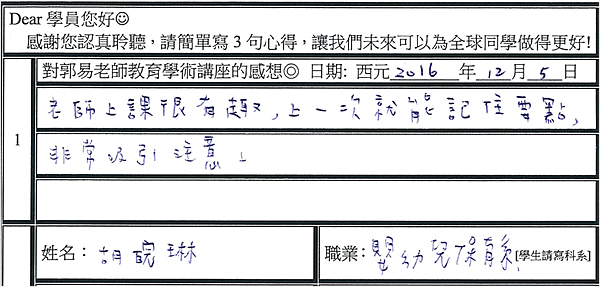 Dear 學員您好☺
感謝您認真聆聽，請簡單寫 3 句心得，讓我們未來可以為全球同學做得更好!
對郭易老師教育學術講座的感想◎ 日期: 西元2016年12月5日
1
老師上課很有趣，上一次就能記住要點，
非常吸引注意。
姓名：胡琳
職業：嬰幼兒保育系 [學生請寫科系]